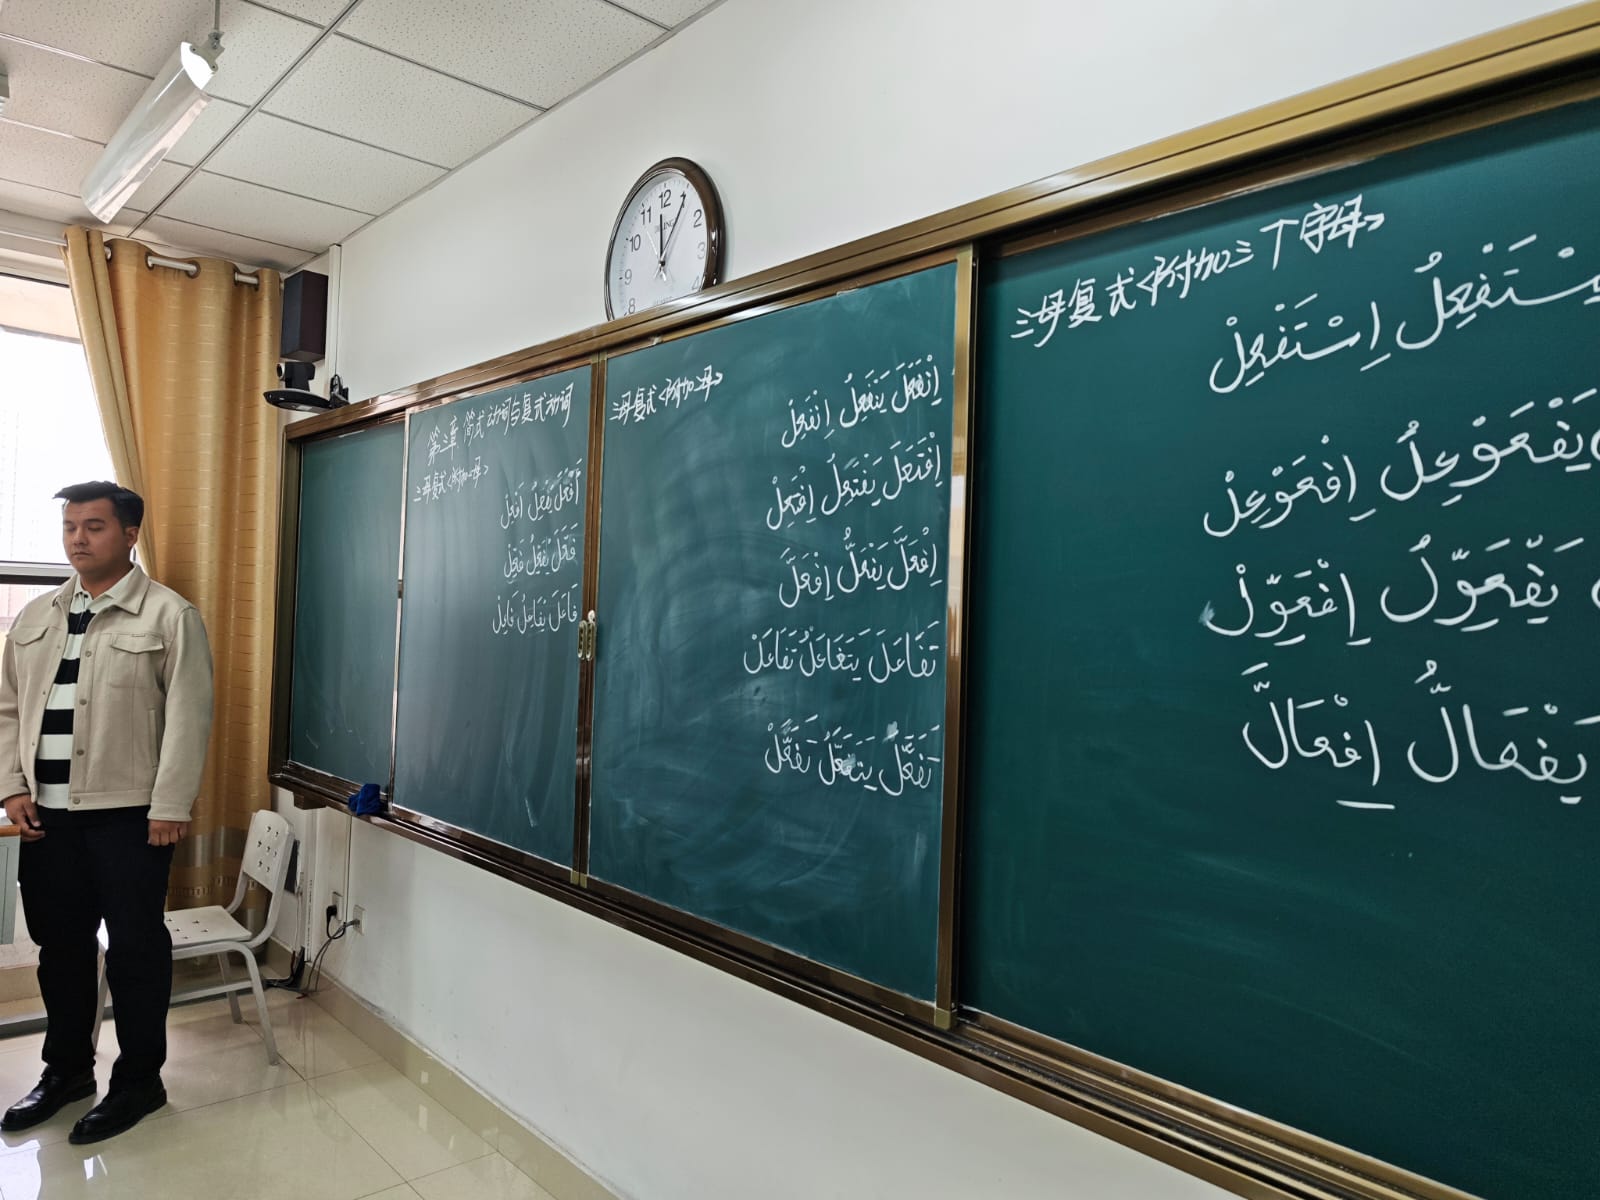 第三章 简式动词与复式动词
三母复式<附加一母>
أَفْعَلَ يُفْعِلُ أَفْعِلْ
فَعَّلَ يُفَعِّلُ فَعِّلْ
فَاعَلَ يُفَاعِلُ فَاعِلْ
三母复式<附加二母>
اِنْفَعَلَ يَنْفَعِلُ اِنْفَعِلْ
اِفْتَعَلَ يَفْتَعِلُ اِفْتَعِلْ
اِفْعَلَّ يَفْعَلُّ اِفْعَلَّ
تَفَاعَلَ يَتَفَاعَلُ تَفَاعَلْ
تَفَعَّلَ يَتَفَعَّلُ تَفَعَّلْ
三母复式<附加三个字母>
يَسْتَفْعِلُ اِسْتَفْعِلْ
يَفْعَوْعِلُ اِفْعَوْعِلْ
يَفْعَوِّلُ اِفْعَوِّلْ
يَفْعَالُّ اِفْعَالَّ
12
1
2
3
4
8
9
10
11